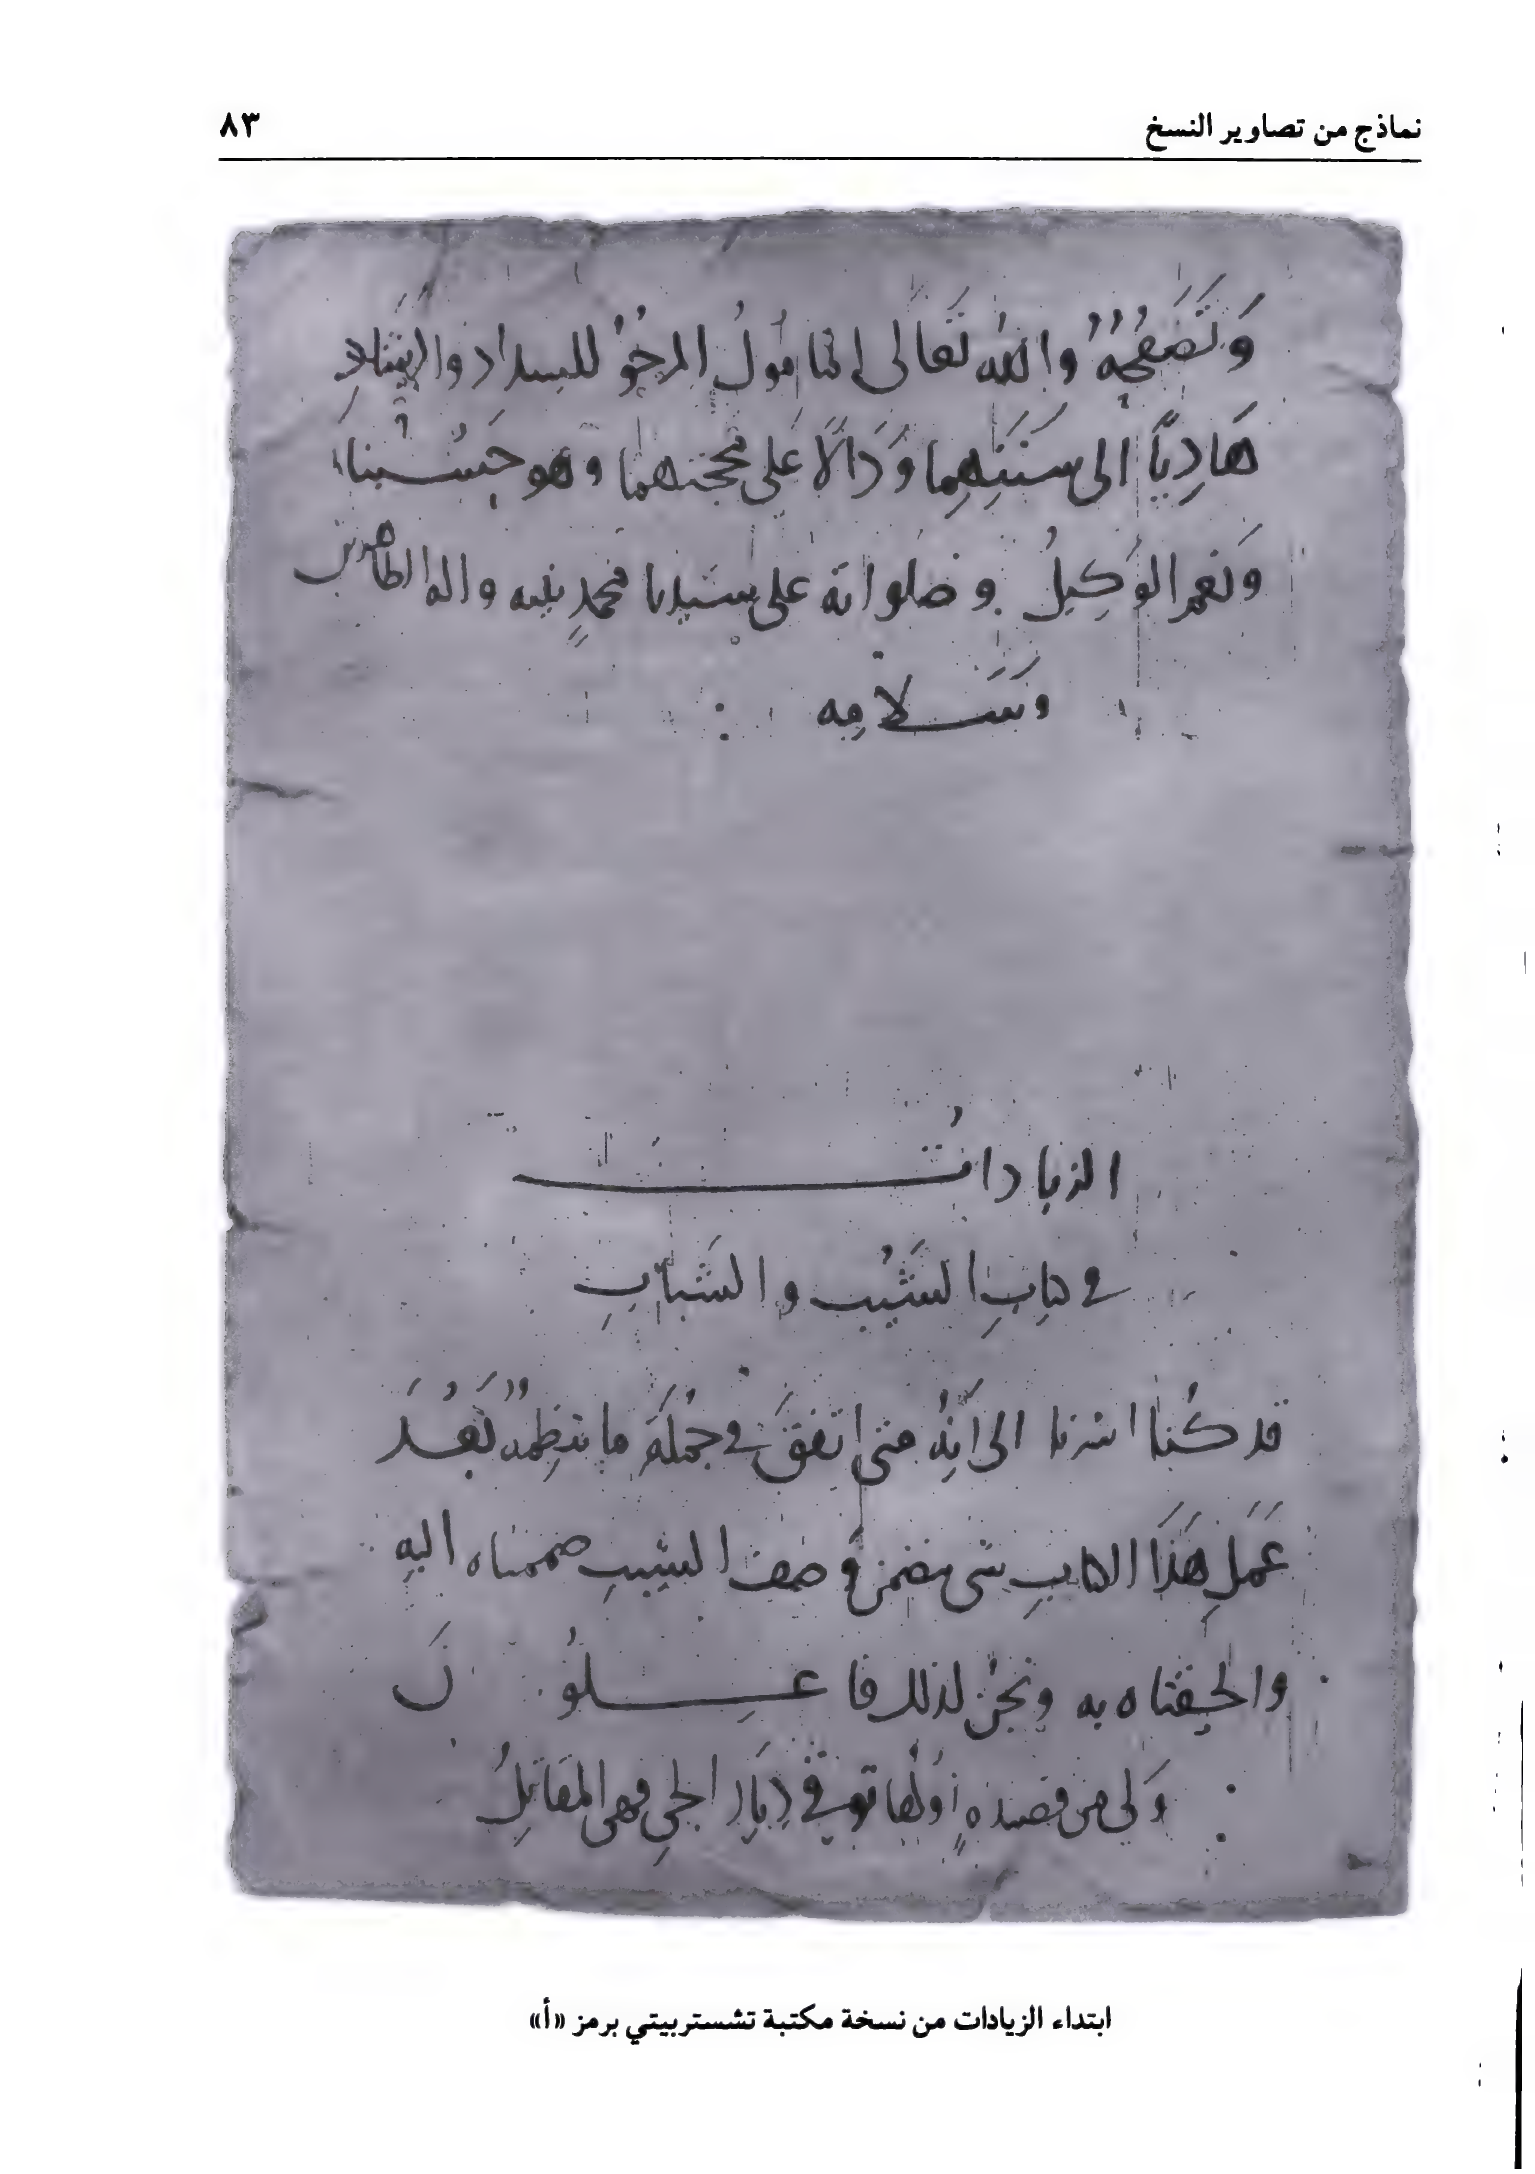 نماذج من تصاوير النسخ ٨٣
وَتَصَفُّحِهِ واللهُ تَعالى المأمُولُ المرجُوُّ للسداد والرشادِ
هَادِيًا الى سَنَنِهِما وَدَالًا عَلى محجتهما وهو حَسْبنا
وَنعم الوَكيلُ وصلواته على سيدنا محمدٍ نبيه واله الطاهرين
وسَلامه
الزيادات
في كتابِ الشَّيْبِ والشَّبابِ
قد كُنا اشرنا الى أنهُ متى اتفقَ في جُملَة ما ننظِمُهُ بَعْدَ
عَمَلِ هَذَا الكتابِ شي يتضمن وَصف الشيبِ ضممناه اليهِ
والحقناه به ونحنُ لذلك فاعِلُونَ
وَلي من قصيده أولها توقَّ دِيَارَ الحي فهى المقَاتِلُ
ابتداء الزيادات من نسخة مكتبة تشستربيتي برمز «أ»